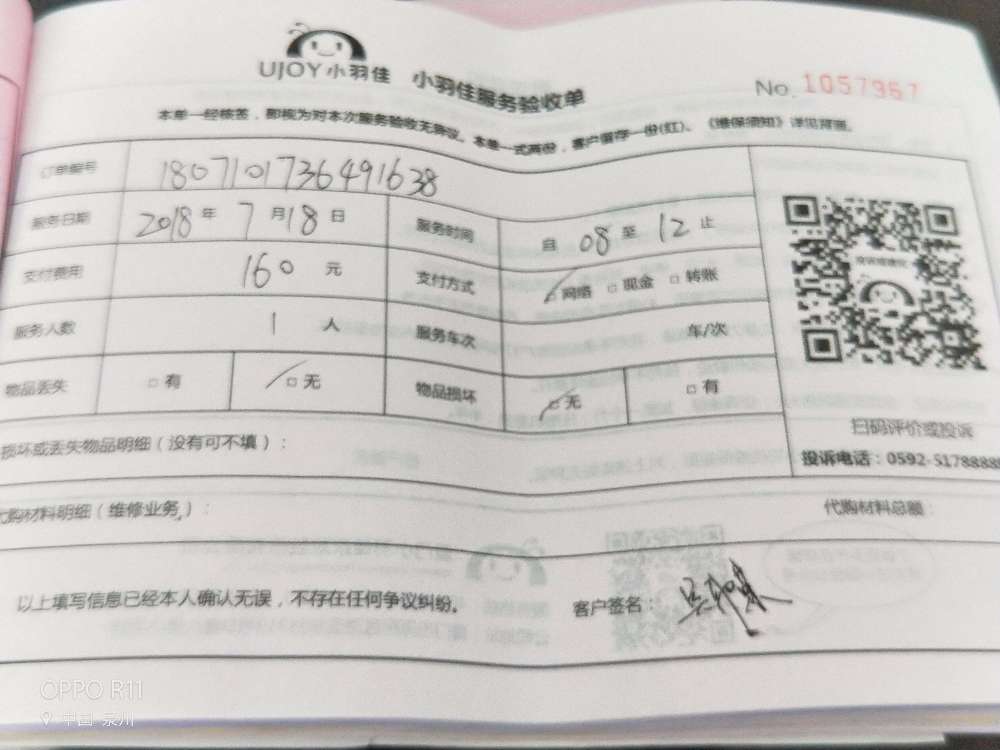 UJOY小羽佳 小羽佳服务验收单 No. 1057967
本单一经核签，即视为对本次服务验收无异议。本单一式两份，客户留存一份(红)。《维保须知》详见背面。
订单编号 180710173649 1638
服务日期 2018年 7月18日 服务时间 自 08 至 12 止
支付费用 160 元 支付方式 □网络 □现金 □转账
服务人数 1 人 服务车次 车/次
物品丢失 □有 □无 物品损坏 □无 □有
扫码评价或投诉
损坏或丢失物品明细（没有可不填）：
投诉电话：0592-5178888
代购材料明细（维修业务）： 代购材料总额：
以上填写信息已经本人确认无误，不存在任何争议纠纷。 客户签名：
OPPO R11
中国·泉州